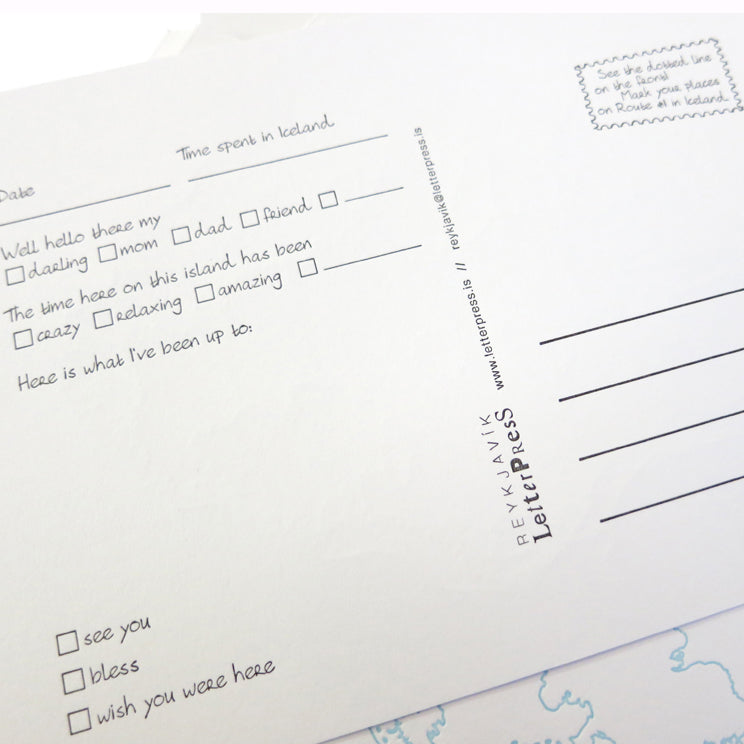 Date
Time spent in Iceland
Well hello there my
darling mom dad friend
The time here on this island has been
crazy relaxing amazing
Here is what I've been up to:
see you
bless
wish you were here
REYKJAVÍK
LetterPress www.letterpress.is // reykjavik@letterpress.is
See the dotted line
on the front!
Mark your places
on Route #1 in Iceland.